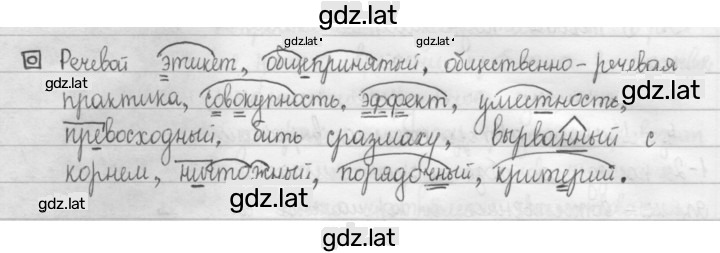 gdz.lat
gdz.lat gdz.lat
Речевой этикет, общепринятый, общественно-речевая
практика, совокупность, эффект, уместность,
превосходный, бить сразмаху, вырванный с
корнем, ничтожный, порядочный, критерий.
gdz.lat gdz.lat gdz.lat
gdz.lat